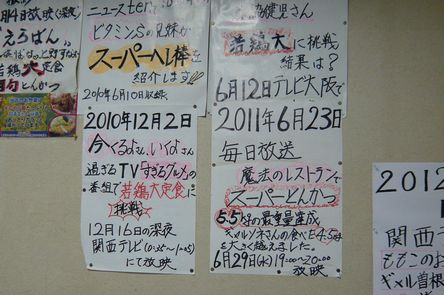 月4日放映で深夜
"えろばん"
若鶏大定食
ニュースter.
ビタミンSの兄妹が
スーパーヘレ棒を
紹介します
2010年6月10日収録
健児さん
若鶏大に挑戦
結果は?
6月12日テレビ大阪で
2010年12月2日
今くるよさん、いくよさん
過ぎるTV「すぎるグルメ」の
番組で若鶏大定食に
挑戦
12月16日の深夜
関西テレビ(0:35〜1:05)
にて放映
2011年6月23日
毎日放送
魔法のレストランで
スーパーとんかつ
5.5キロの最重量達成
ギャル曽根さんの食べた4.5キロ
を大きく越えました。
6月29日(水)19:00〜20:00
放映
2012
関西テ
ももこのお
ギャル曽根